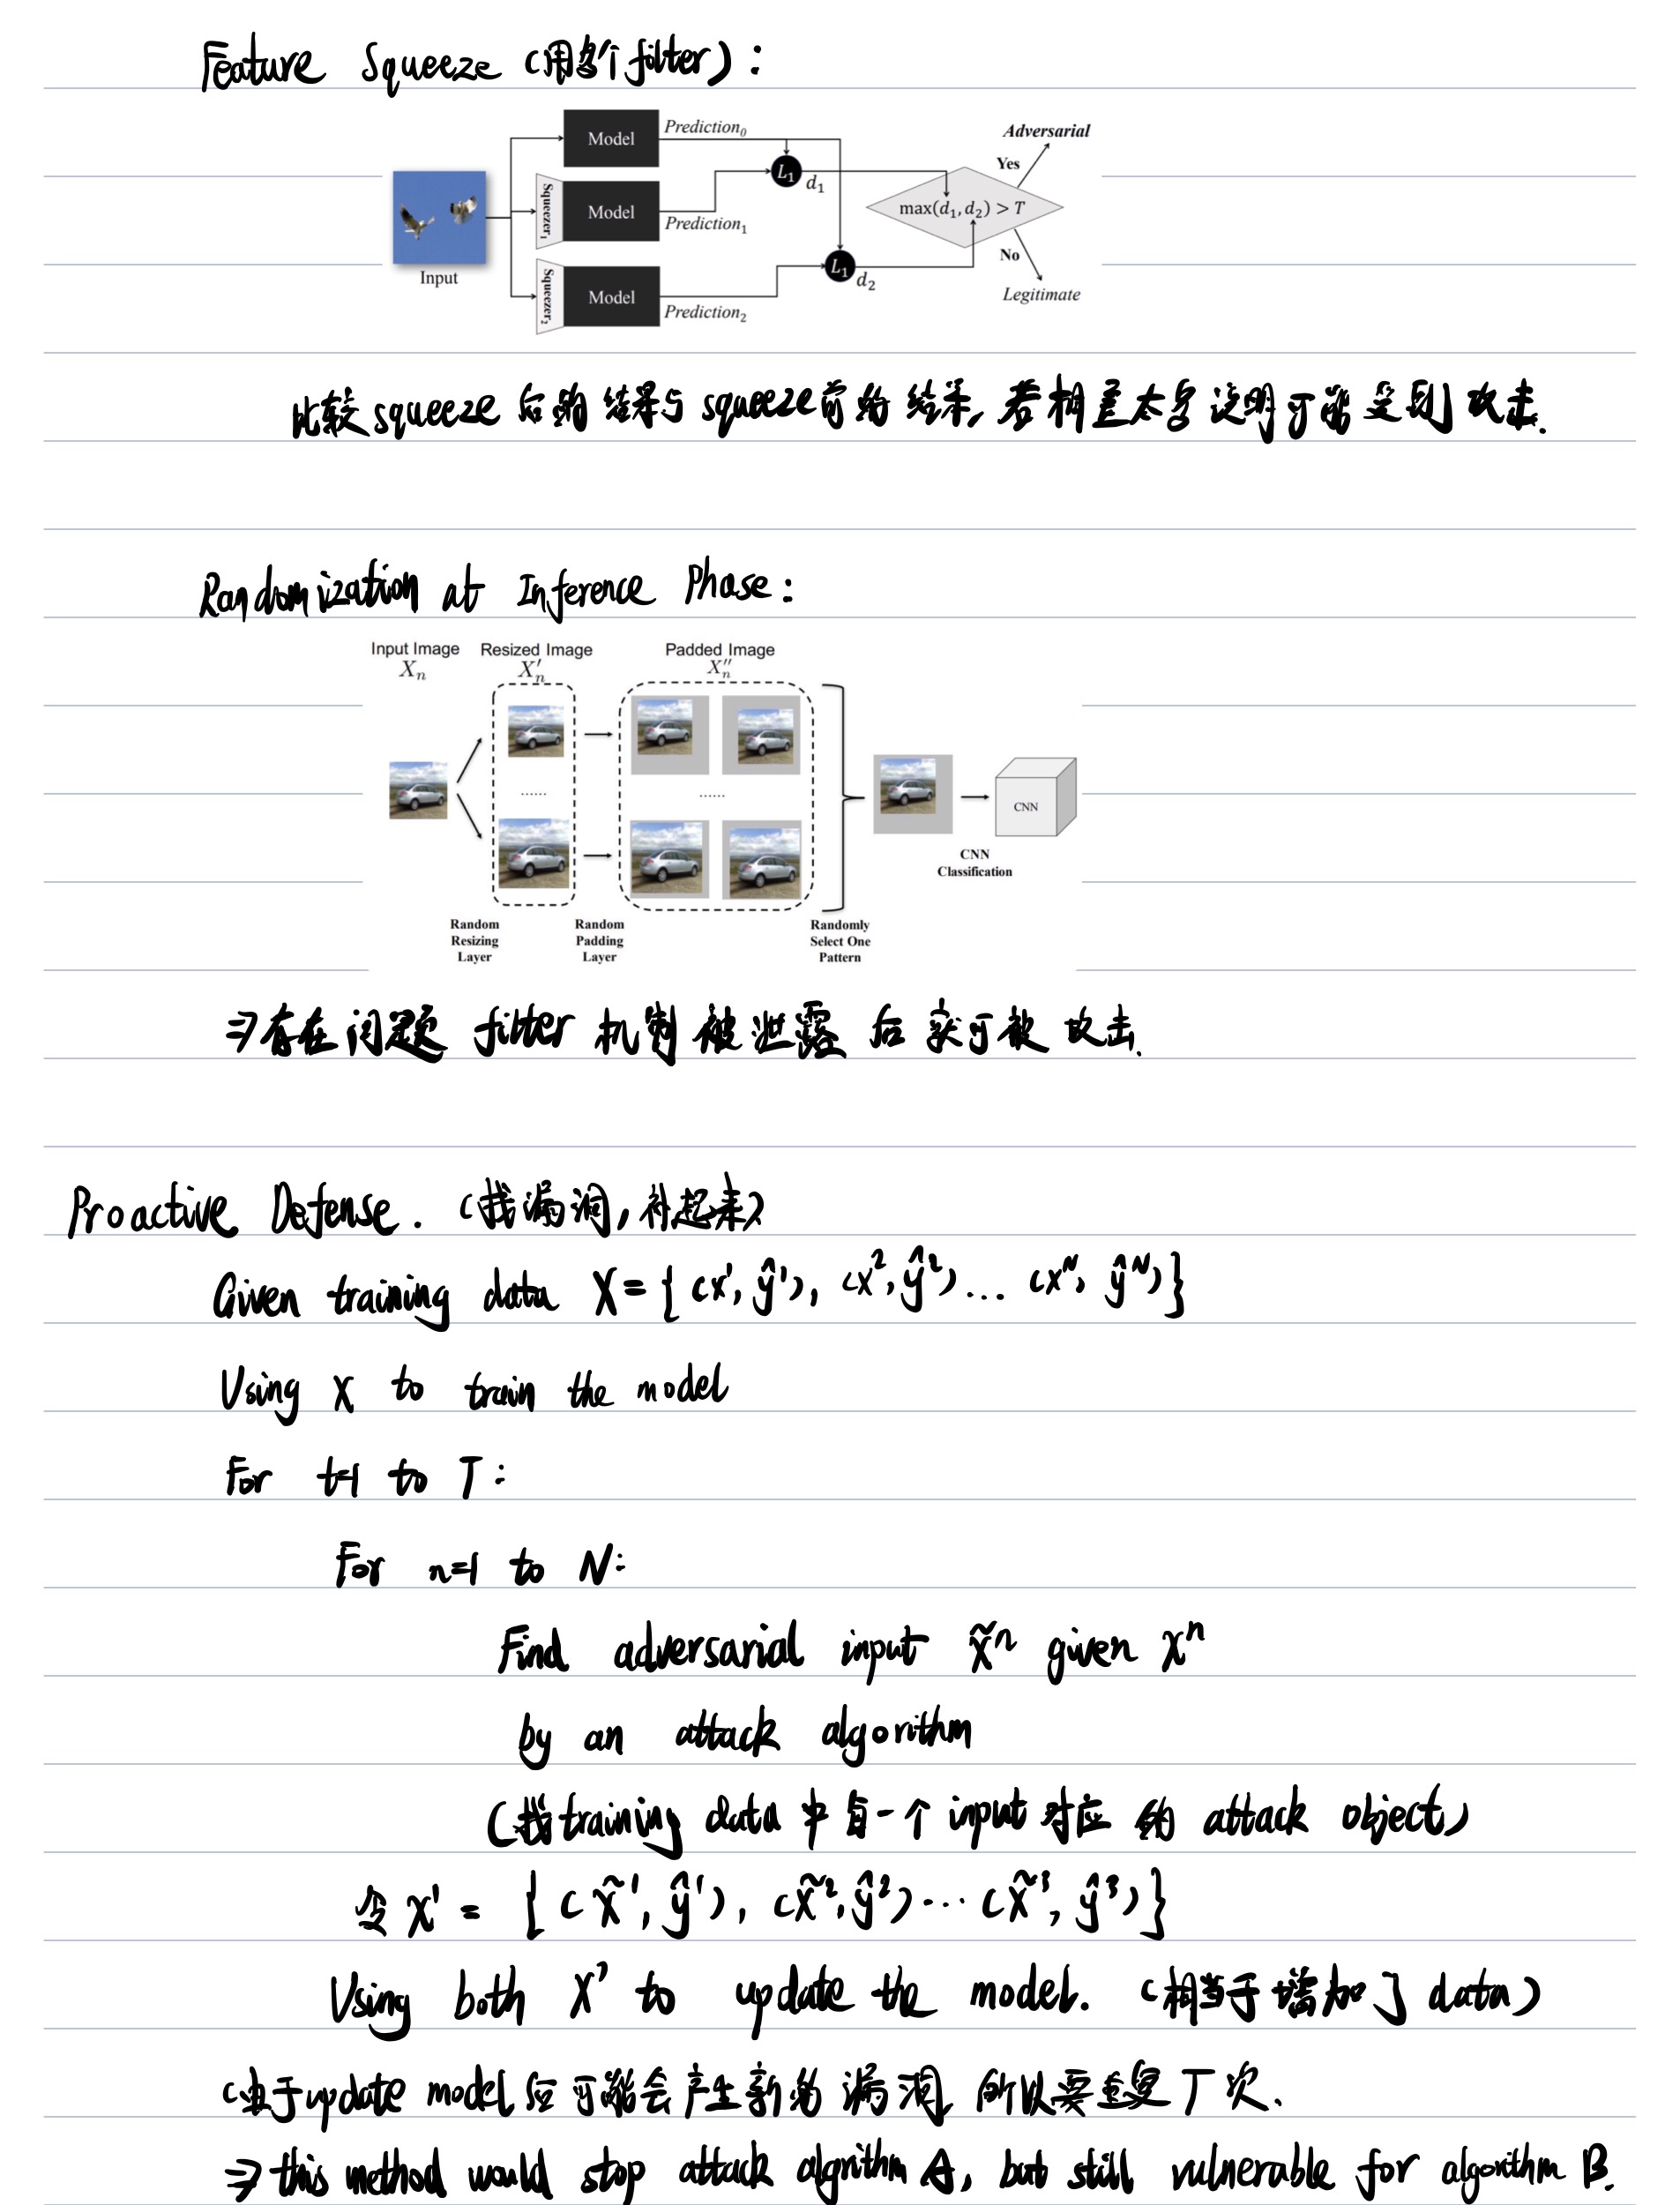 Feature Squeeze (用多个filter):
Model
Prediction₀
Adversarial
Yes
L₁
d₁
Squeezer₁
Model
max(d₁,d₂) > T
Prediction₁
No
Input
L₁
d₂
Squeezer₂
Model
Legitimate
Prediction₂
比较squeeze后的结果与squeeze前的结果,若相差太多说明可能受到攻击.
Randomization at Inference Phase:
Input Image
Xₙ
Resized Image
X′ₙ
Padded Image
X″ₙ
......
......
CNN
CNN
Classification
Random
Resizing
Layer
Random
Padding
Layer
Randomly
Select One
Pattern
⇒存在问题 filter 机制被泄露后就可被攻击.
Proactive Defense. (找漏洞,补起来)
Given training data X={(x¹, ŷ¹), (x², ŷ²)... (xᴺ, ŷᴺ)}
Using X to train the model
For t=1 to T:
For n=1 to N:
Find adversarial input x̃ⁿ given xⁿ
by an attack algorithm
(找training data 中每一个input对应的 attack object)
令X' = {(x̃¹, ŷ¹), (x̃², ŷ²)...(x̃³, ŷ³)}
Using both X' to update the model. (相当于增加了data)
(由于update model后可能会产生新的漏洞,所以要重复T次.
⇒this method would stop attack algrithm A, but still vulnerable for algorithm B.